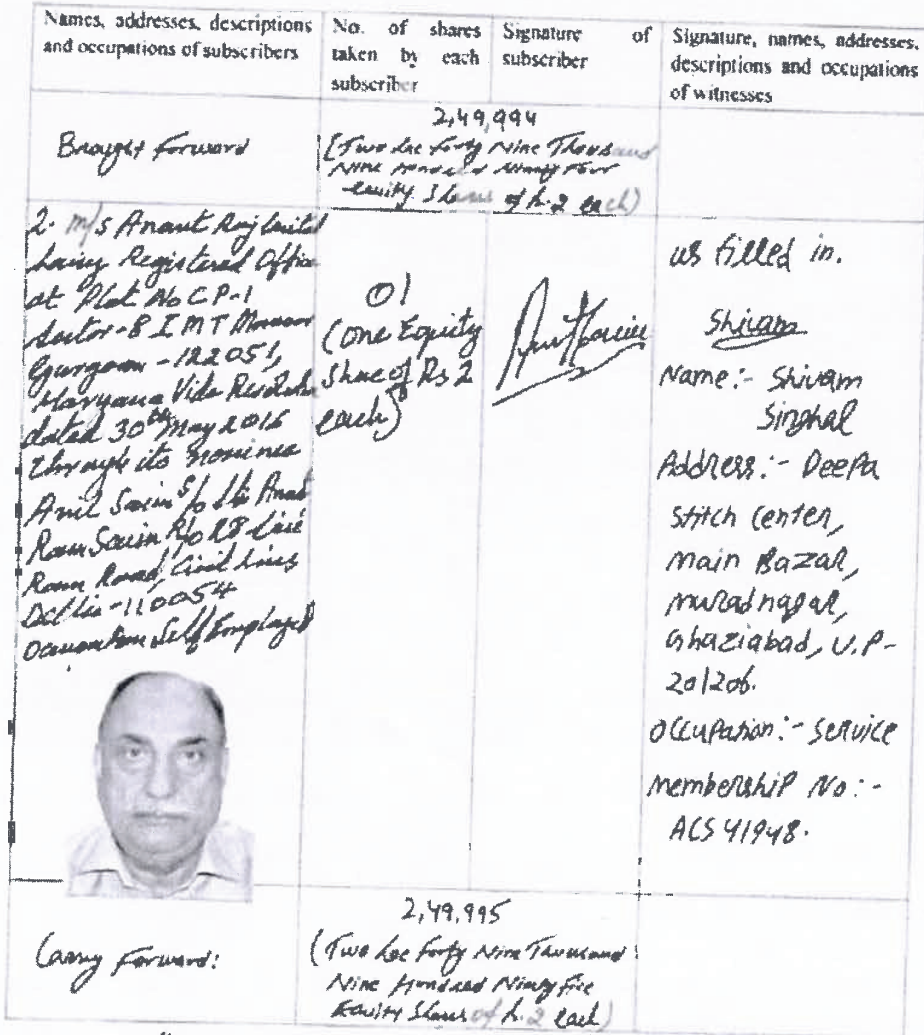 Names, addresses, descriptions
and occupations of subscribers
No. of shares
taken by each
subscriber
Signature of
subscriber
Signature, names, addresses,
descriptions and occupations
of witnesses
Brought Forward
2,49,994
(Two Lac Forty Nine Thousand
Nine Hundred Ninety Four
Equity Shares of Rs. 2 each)
2. M/s Anant Raj Limited
having Registered Office
at Plot No CP-1
Sector-8 IMT Manesar
Gurgaon - 122051,
Haryana Vide Resolution
dated 30th May 2016
through its nominee
Anil Sarin S/o Sh. Anant
Ram Sarin R/o
Ram Road, Civil Lines
Delhi-110054
Occupation Self Employed
01
(One Equity
Share of Rs 2
each)
us filled in.
Shivam
Name:- Shivam
Singhal
Address:- Deepa
Stitch Center,
Main Bazar,
Muradnagar,
Ghaziabad, U.P-
201206.
Occupation:- Service
Membership No:-
ACS 41948.
Carry Forward:
2,49,995
(Two Lac Forty Nine Thousand
Nine Hundred Ninety Five
Equity Shares of Rs. 2 each)